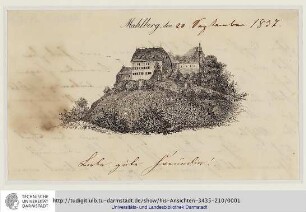 Mahlberg, den 20 September 1837
Liebe gute Freundin!
TECHNISCHE
UNIVERSITÄT
DARMSTADT
http://tudigit.ulb.tu-darmstadt.de/show/his-Ansichten-3435-210/0001
Universitäts- und Landesbibliothek Darmstadt